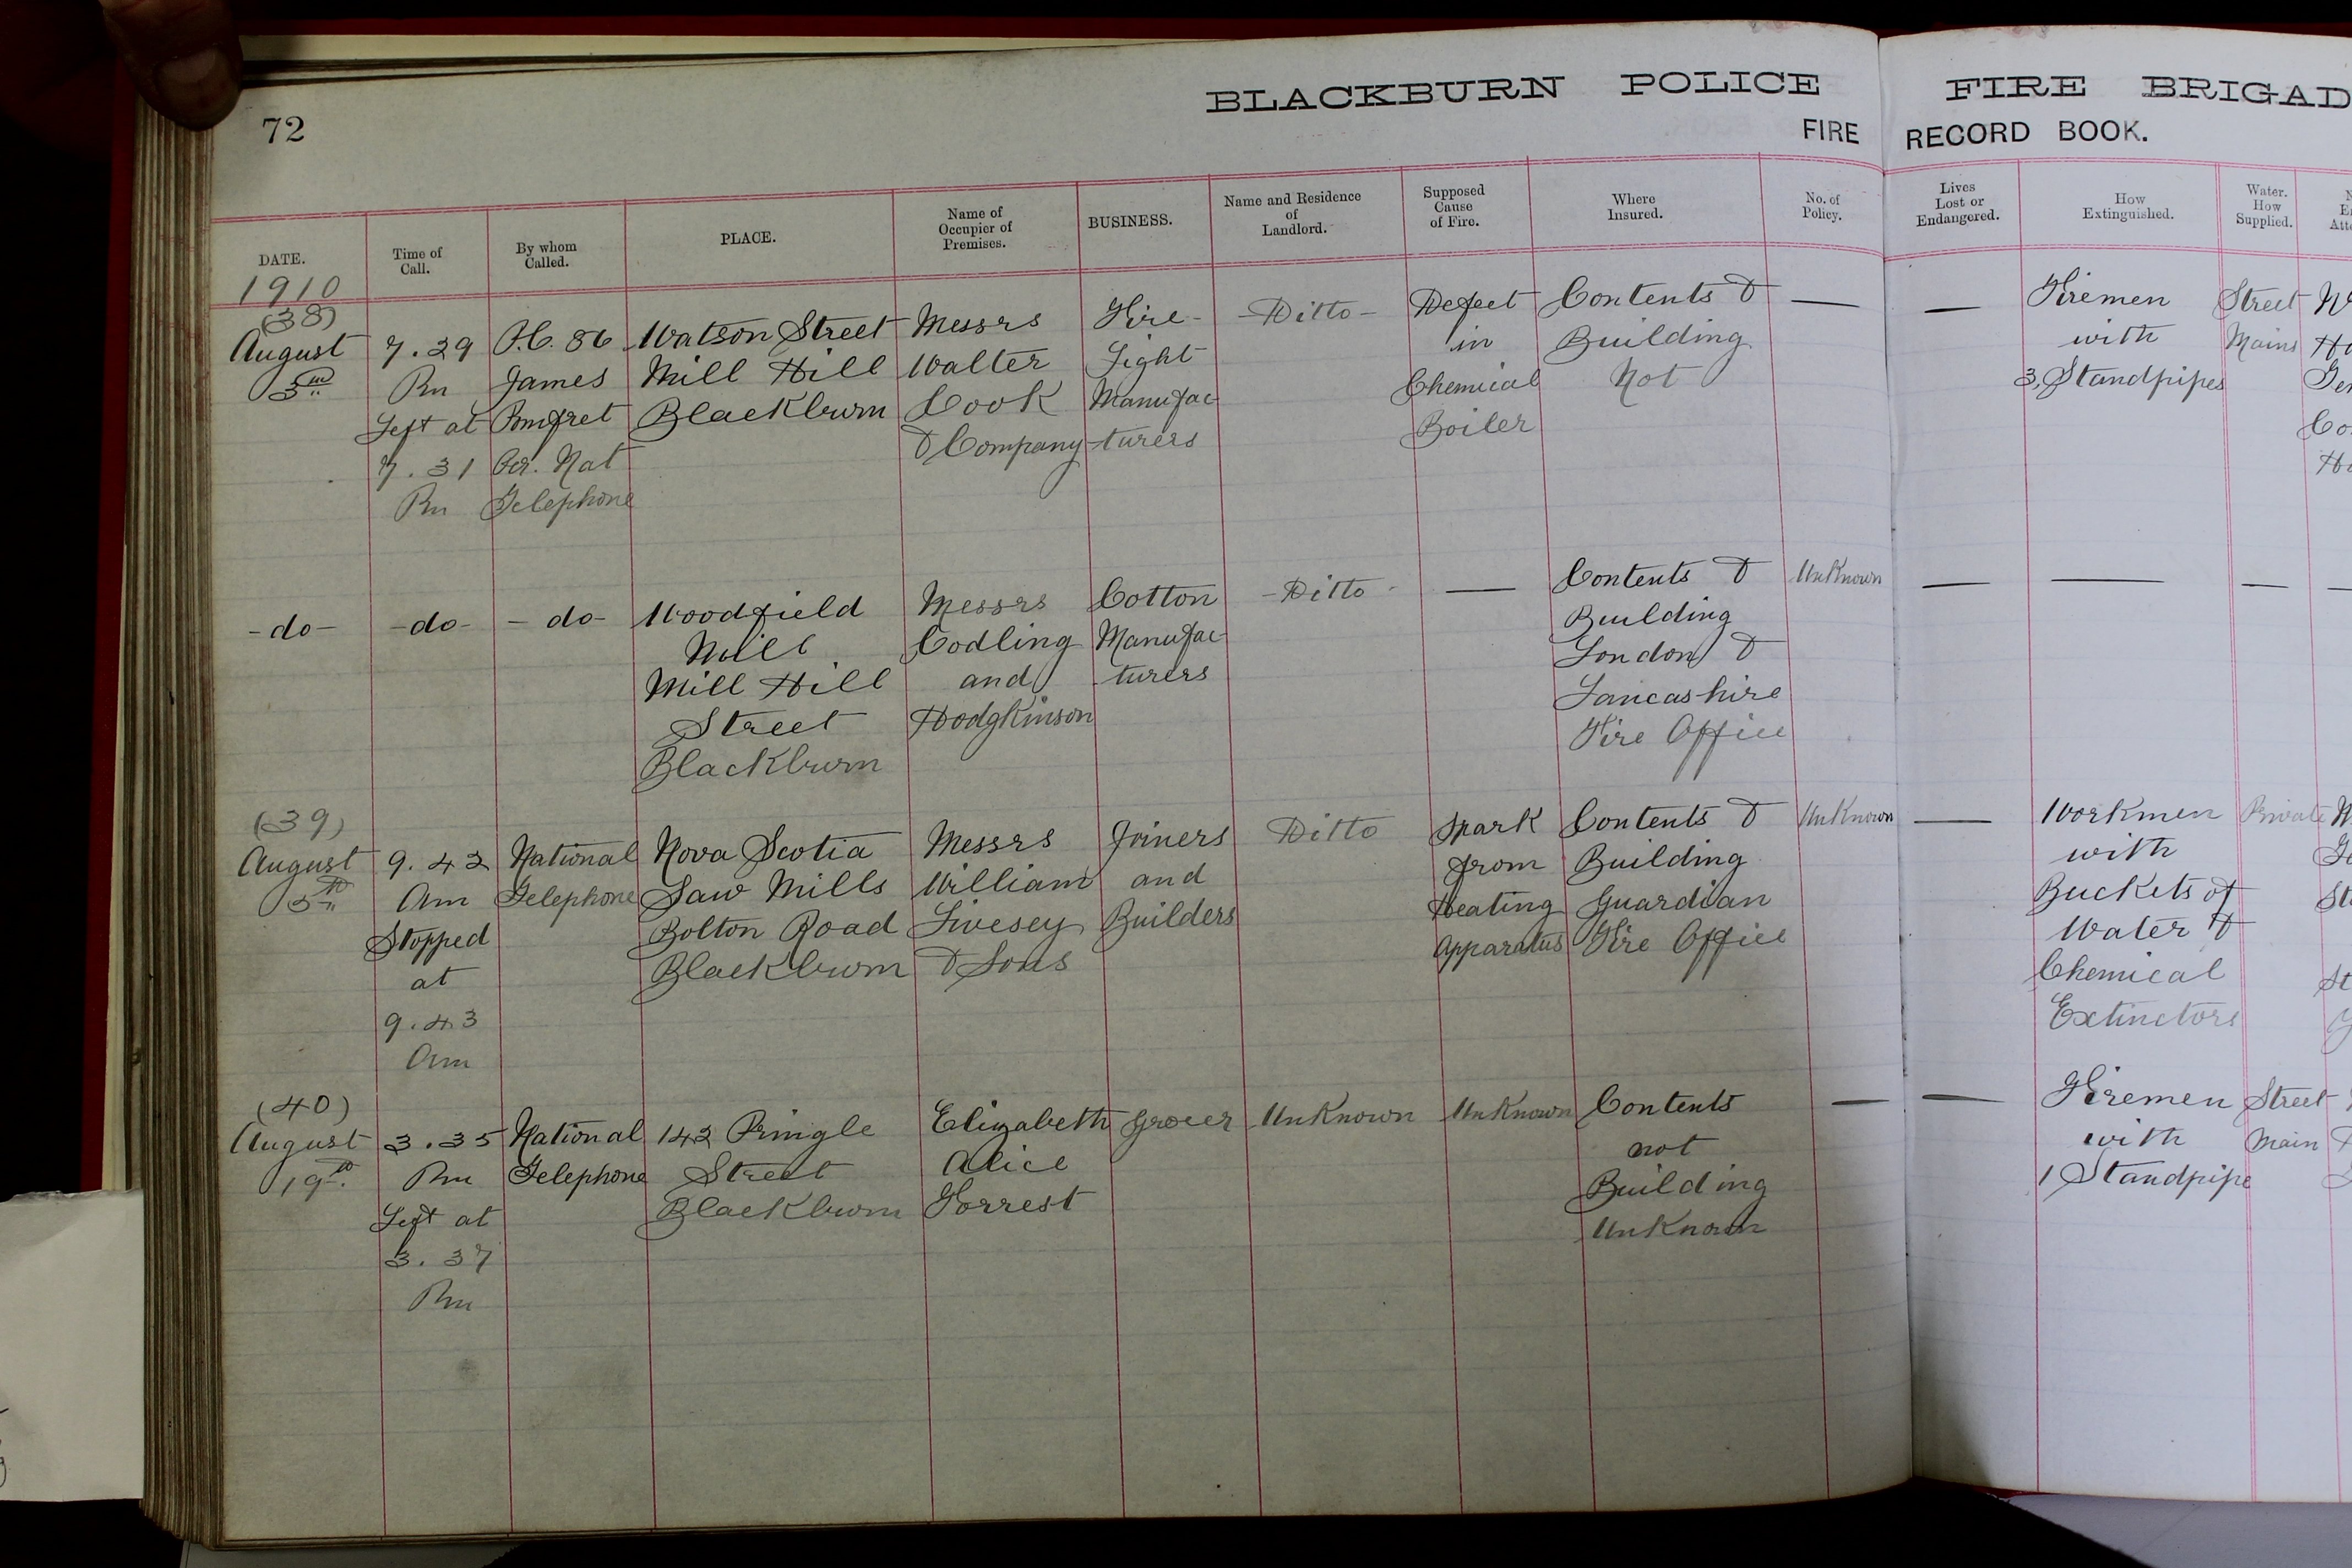 72
BLACKBURN POLICE FIRE BRIGAD
FIRE RECORD BOOK.
DATE.
Time of Call.
By whom Called.
PLACE.
Name of Occupier of Premises.
BUSINESS.
Name and Residence of Landlord.
Supposed Cause of Fire.
Where Insured.
No. of Policy.
Lives Lost or Endangered.
How Extinguished.
Water. How Supplied.
1910
(38)
August
3rd
7.29
Pm
Left at
7.31
Pm
P.C. 86
James
Pomfret
Per. Nat
Telephone
Watson Street
Mill Hill
Blackburn
Messrs
Walter
Cook
& Company
Fire-
Light
Manufac
-turers
-Ditto-
Defect
in
Chemical
Boiler
Contents &
Building
Not
—
—
Firemen
with
3, Standpipes
Street
Mains
-do-
-do-
- do-
Woodfield
Mill
Mill Hill
Street
Blackburn
Messrs
Codling
and
Hodgkinson
Cotton
Manufac
turers
-Ditto-
—
Contents &
Building
London &
Lancashire
Fire Office
Unknown
—
—
—
(39)
August
5th
9.42
Am
Stopped
at
9.43
Am
National
Telephone
Nova Scotia
Saw Mills
Bolton Road
Blackburn
Messrs
William
Livesey
& Sons
Joiners
and
Builders
Ditto
Spark
from
Heating
Apparatus
Contents &
Building
Guardian
Fire Office
Unknown
—
Workmen
with
Buckets of
Water &
Chemical
Extinctors
Private
(40)
August
19th
3.35
Pm
Left at
3.37
Pm
National
Telephone
142 Pringle
Street
Blackburn
Elizabeth
Alice
Forrest
Grocer
Unknown
Unknown
Contents
not
Building
Unknown
—
—
Firemen
with
1 Standpipe
Street
Main